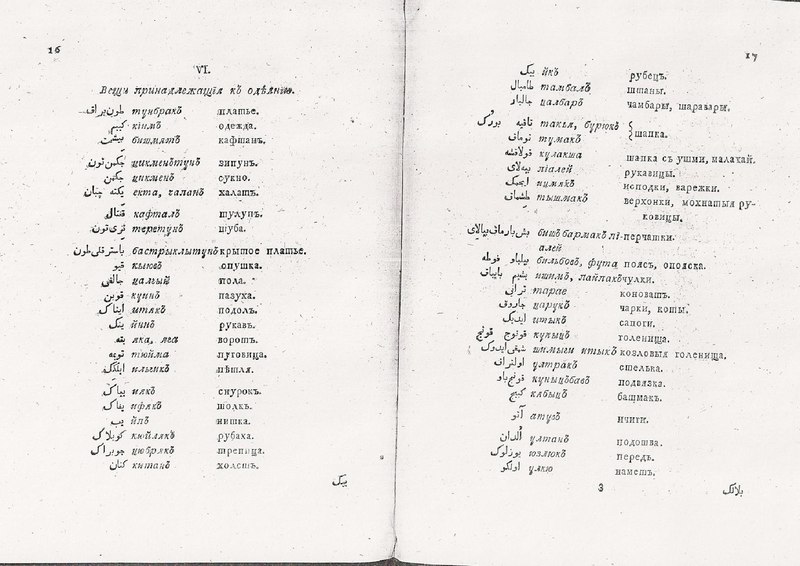 16
VI.
Вещи принадлежащія къ одѣянію.
طون براق тунбракъ платье.
كييم кіимъ одежда.
بيشمت бишмятъ кафтанъ.
چكمن تون цикмень тунъ зипунъ.
چكمن цикмень сукно.
يكته چپان екта, чапанъ халатъ.
قفتال кафталъ тулупъ.
تری تون теретунъ шуба.
باسترقلی طون бастрыклытунъ крытое платье.
قيو кыювъ опушка.
чалгый пола.
قوين куинъ пазуха.
ايتاك итякъ подолъ.
ينك йинъ рукавъ.
يقه яка, яга воротъ.
تويمه тюйма пуговица.
илмикъ пѣтля.
иякъ снурокъ.
يفاك ифякъ шолкъ.
يب йпъ нитка.
كوبلاك кюйлякъ рубаха.
چوبراك цюбрякъ трепица.
كتان китанъ холстъ.
بيك
17
بيك йкъ рубецъ.
тамбалъ штаны.
чалбаръ чамбары, шаравары.
تاقيه بورك такья, бурюкъ
توماق тумакъ шапка.
قولاقشه кулакша шапка съ ушми, малахай.
بيه لای піалей рукавицы.
исподки, варежки.
тышмакъ верхонки, мохнатыя ру-
ковицы.
بش بارماق بيالای бишъ бармакъ пі- перчатки.
алей
بيلباو فوطه бильбовъ, фута поясъ, опояска.
ишимъ, пайпакъ чулки.
тарае коноватъ.
чарукъ чарки, коты.
итыкъ сапоги.
قونوج قونچ куныцъ голенища.
итыкъ козловыя голенища.
ултракъ стелька.
قونچ باو куныцъбавъ подвязка.
كبچ кябыцъ башмакъ.
ичиги.
اُلدان ултанъ подошва.
يوزلوك юзлюкъ передъ.
اولكو улкю наметъ.
3